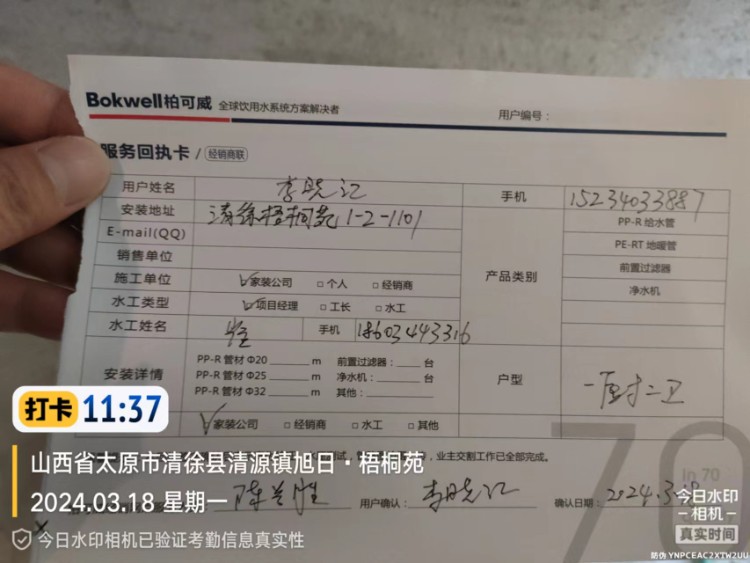 Bokwell柏可威 全球饮用水系统方案解决者
用户编号：
服务回执卡 / 经销商联
用户姓名 李晓江 手机 15234033887
安装地址 清徐梧桐苑1-2-1101
E-mail(QQ)
销售单位
施工单位 ☑家装公司 □个人 □经销商
产品类别
PP-R 给水管
PE-RT 地暖管
前置过滤器
净水机
水工类型 ☑项目经理 □工长 □水工
水工姓名 手机 18603443316
安装详情
PP-R 管材 Φ20 ______ m 前置过滤器：____ 台
PP-R 管材 Φ25 ______ m 净水机：____ 台
PP-R 管材 Φ32 ______ m 其他：____
户型 一厨二卫
☑家装公司 □经销商 □水工 □其他
业主交割工作已全部完成。
陈兰胜 用户确认：李晓江 确认日期：2024.3.18
In 70
70
打卡 11:37
山西省太原市清徐县清源镇旭日·梧桐苑
2024.03.18 星期一
今日水印相机已验证考勤信息真实性
今日水印
相机
真实时间
防伪 YNPCEAC2XTW2UU